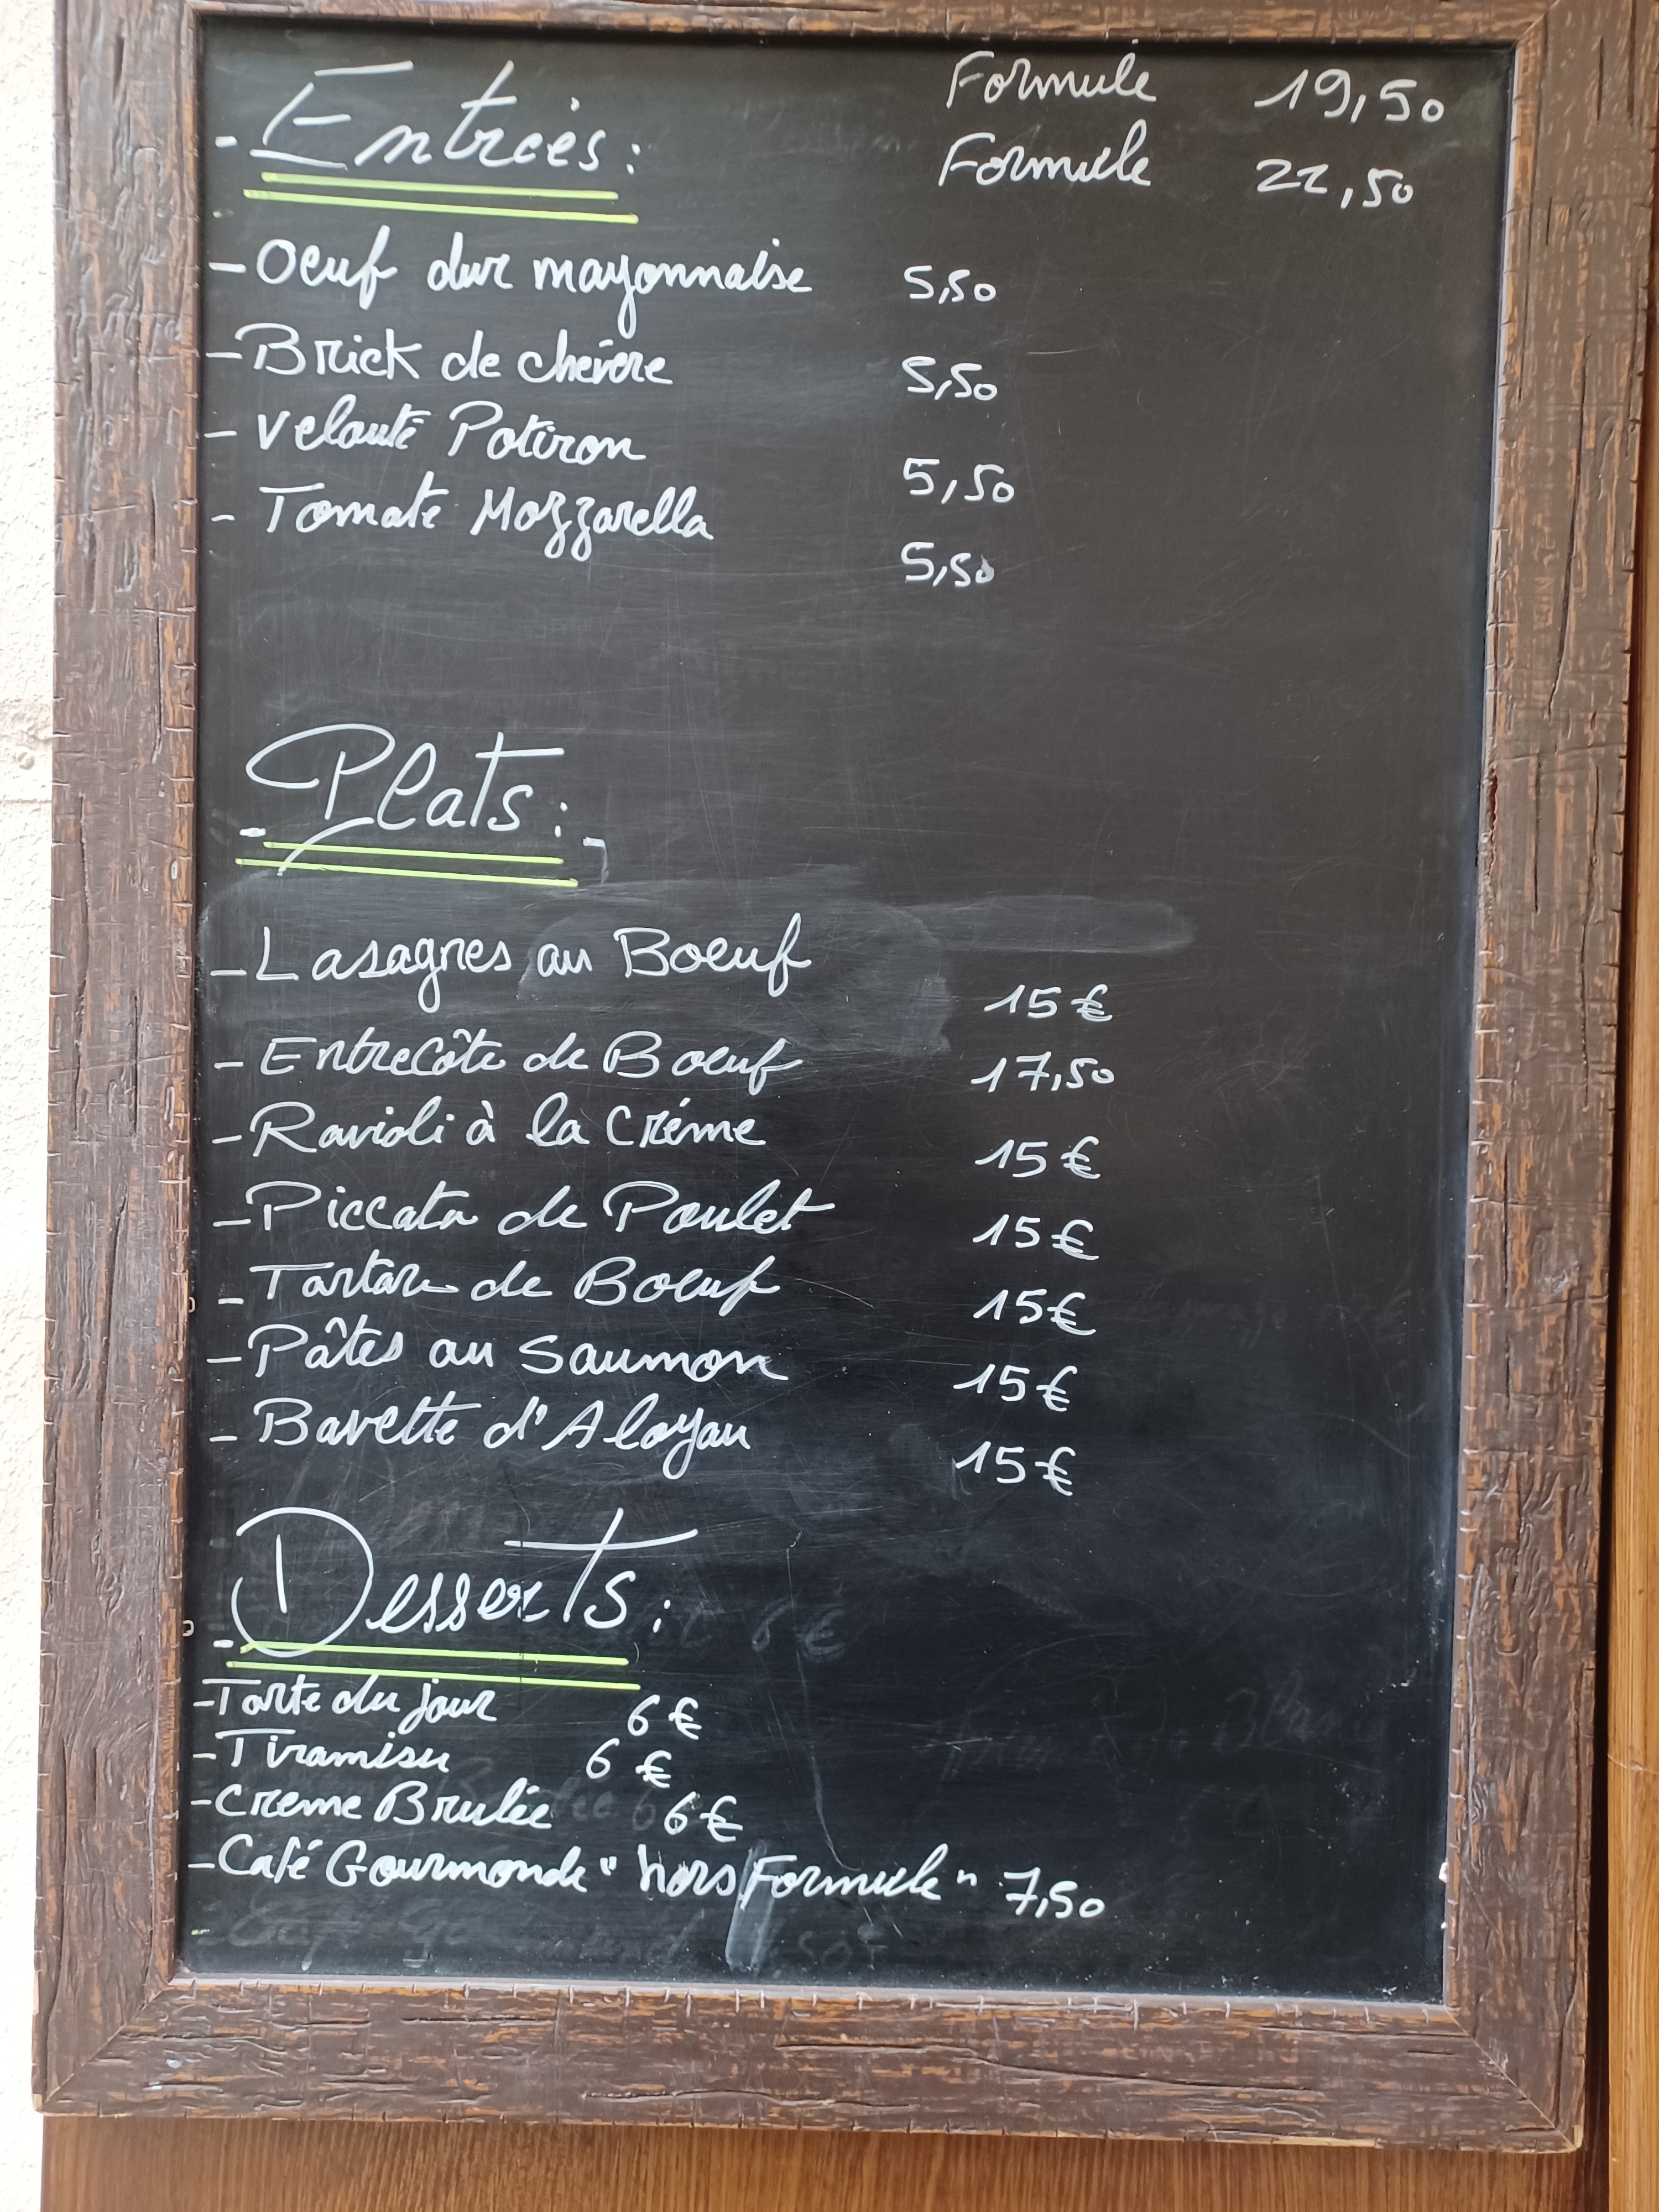 - Entrées :
Formule 19,50
Formule 22,50
- Oeuf dur mayonnaise 5,50
- Brick de chèvre 5,50
- Velouté Potiron 5,50
- Tomate Mozzarella 5,50
- Plats :
- Lasagnes au Boeuf 15€
- Entrecôte de Boeuf 17,50
- Ravioli à la Créme 15€
- Piccata de Poulet 15€
- Tartare de Boeuf 15€
- Pâtes au Saumon 15€
- Bavette d'Aloyau 15€
- Desserts :
- Tarte du jour 6€
- Tiramisu 6€
- Creme Brulée 6€
- Café Gourmonde "hors Formule" 7,50